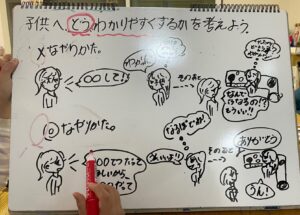 子供へ、どうわかりやすくするかを考えよう。
×なやりかた。
〇〇して!!
そのあと
なんで
こうなるの!?
もういい!!
◎なやりかた。
なるほどね!
〇〇てつだって
ほしいから、
〇〇だって
そのあと
ありがとう
うん!